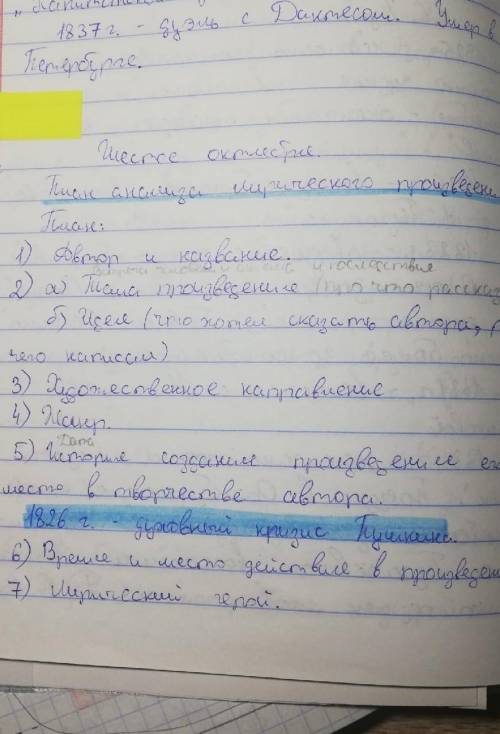 „Капитанс
1837 г. - дуэль с Дантесом. Умер в
Петербурге.
Шестое октября.
План анализа лирического произведени
План:
1) Автор и название.
2) а) Тема произведение (про что рассказ
б) Идея (что хотел сказать автора,
чего написал)
3) Художественное направление
4) Жанр.
Дата
5) История создание произведение его
место в творчестве автора.
1826 г. - духовный кризис Пушкина.
6) Время и место действие в произведен
7) Лирический герой.